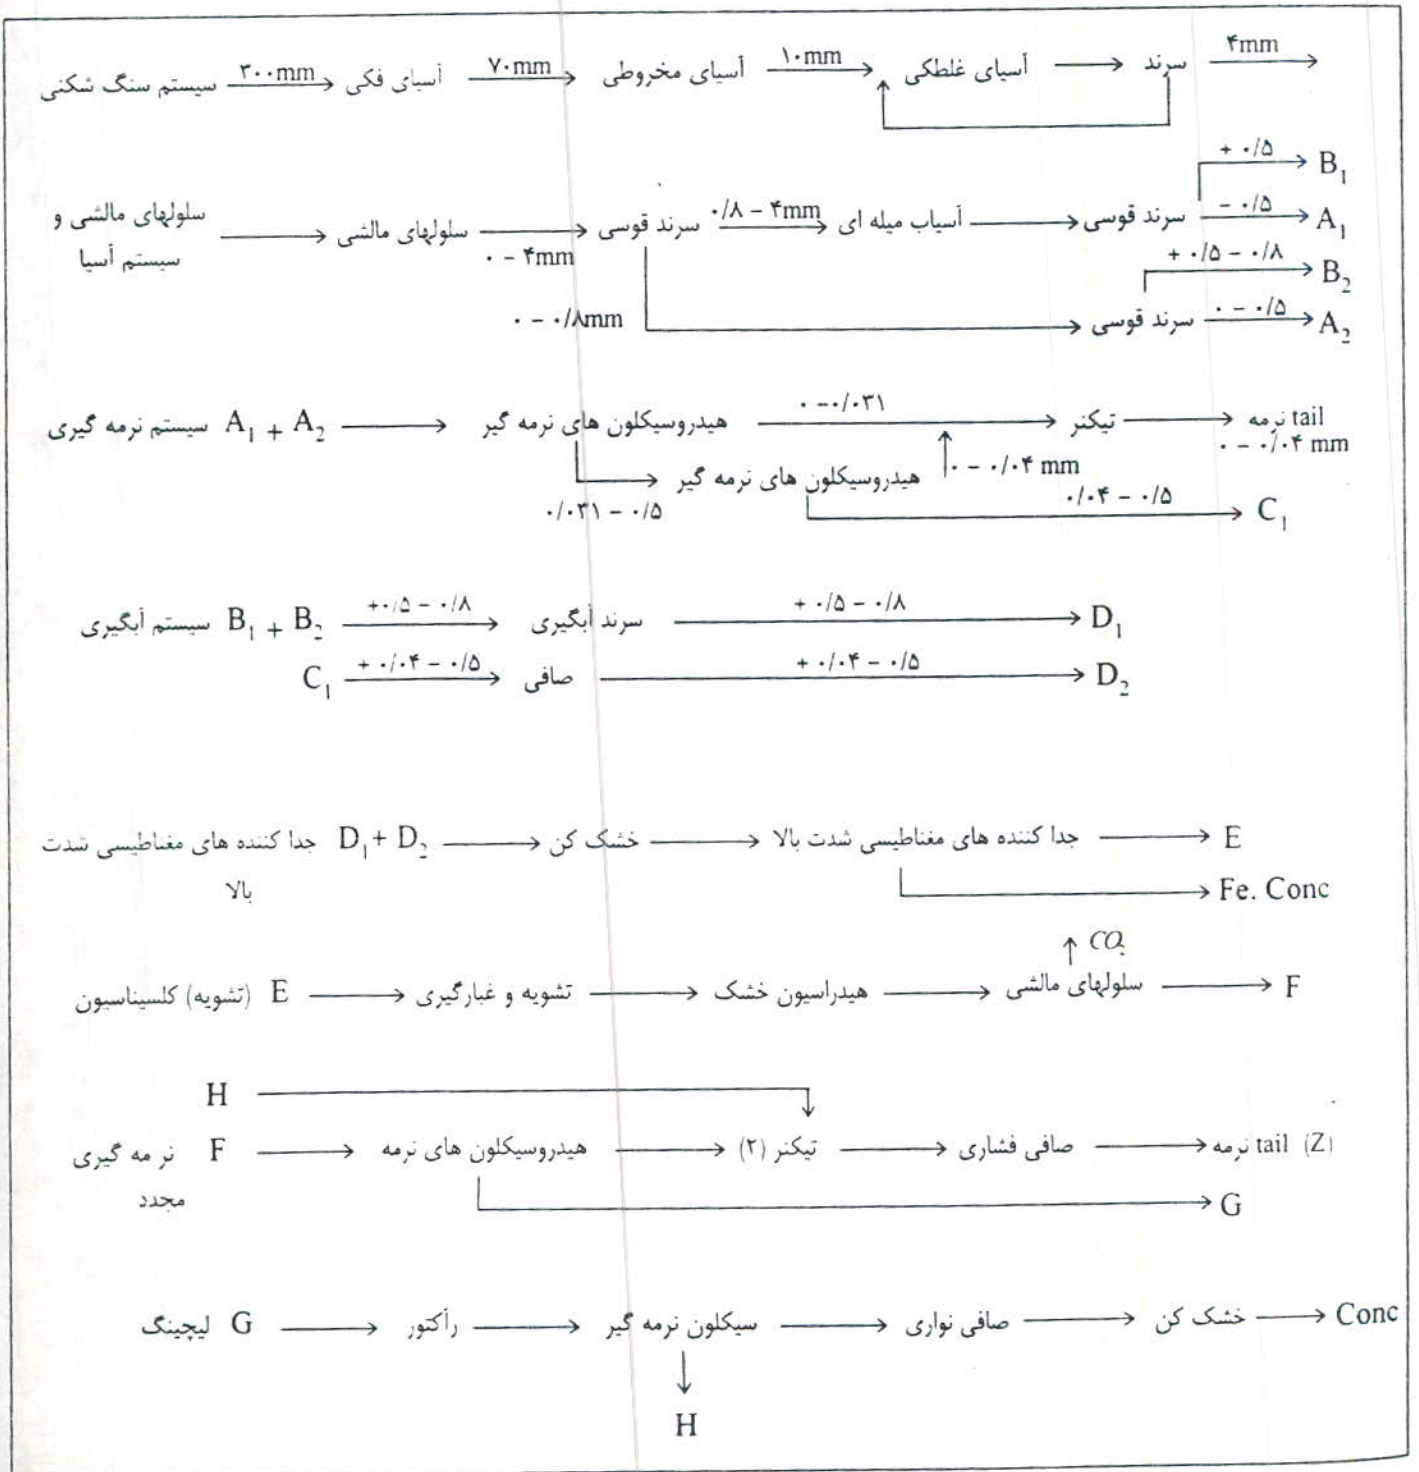 سیستم سنگ شکنی ۳۰۰mm آسیای فکی ۷۰mm آسیای مخروطی ۱۰mm آسیای غلطکی سرند ۴mm
+ ۰/۵ B₁
سلولهای مالشی و سیستم آسیا سلولهای مالشی ۰ - ۴mm سرند قوسی ۰/۸ - ۴mm آسیاب میله ای سرند قوسی - ۰/۵ A₁
+ ۰/۵ - ۰/۸ B₂
۰ - ۰/۸mm سرند قوسی ۰ - ۰/۵ A₂
سیستم نرمه گیری A₁ + A₂ هیدروسیکلون های نرمه گیر ۰ - ۰/۰۳۱ تیکنر نرمه tail
۰ - ۰/۰۴ mm
هیدروسیکلون های نرمه گیر ۰ - ۰/۰۴ mm
۰/۰۳۱ - ۰/۵ ۰/۰۴ - ۰/۵ C₁
سیستم آبگیری B₁ + B₂ +۰/۵ - ۰/۸ سرند آبگیری + ۰/۵ - ۰/۸ D₁
C₁ + ۰/۰۴ - ۰/۵ صافی + ۰/۰۴ - ۰/۵ D₂
جدا کننده های مغناطیسی شدت بالا D₁ + D₂ خشک کن جدا کننده های مغناطیسی شدت بالا E
Fe. Conc
CO₂
(تشویه) کلسیناسیون E تشویه و غبارگیری هیدراسیون خشک سلولهای مالشی F
H
نرمه گیری مجدد F هیدروسیکلون های نرمه تیکنر (۲) صافی فشاری نرمه tail (Z)
G
لیچینگ G رآکتور سیکلون نرمه گیر صافی نواری خشک کن Conc
H